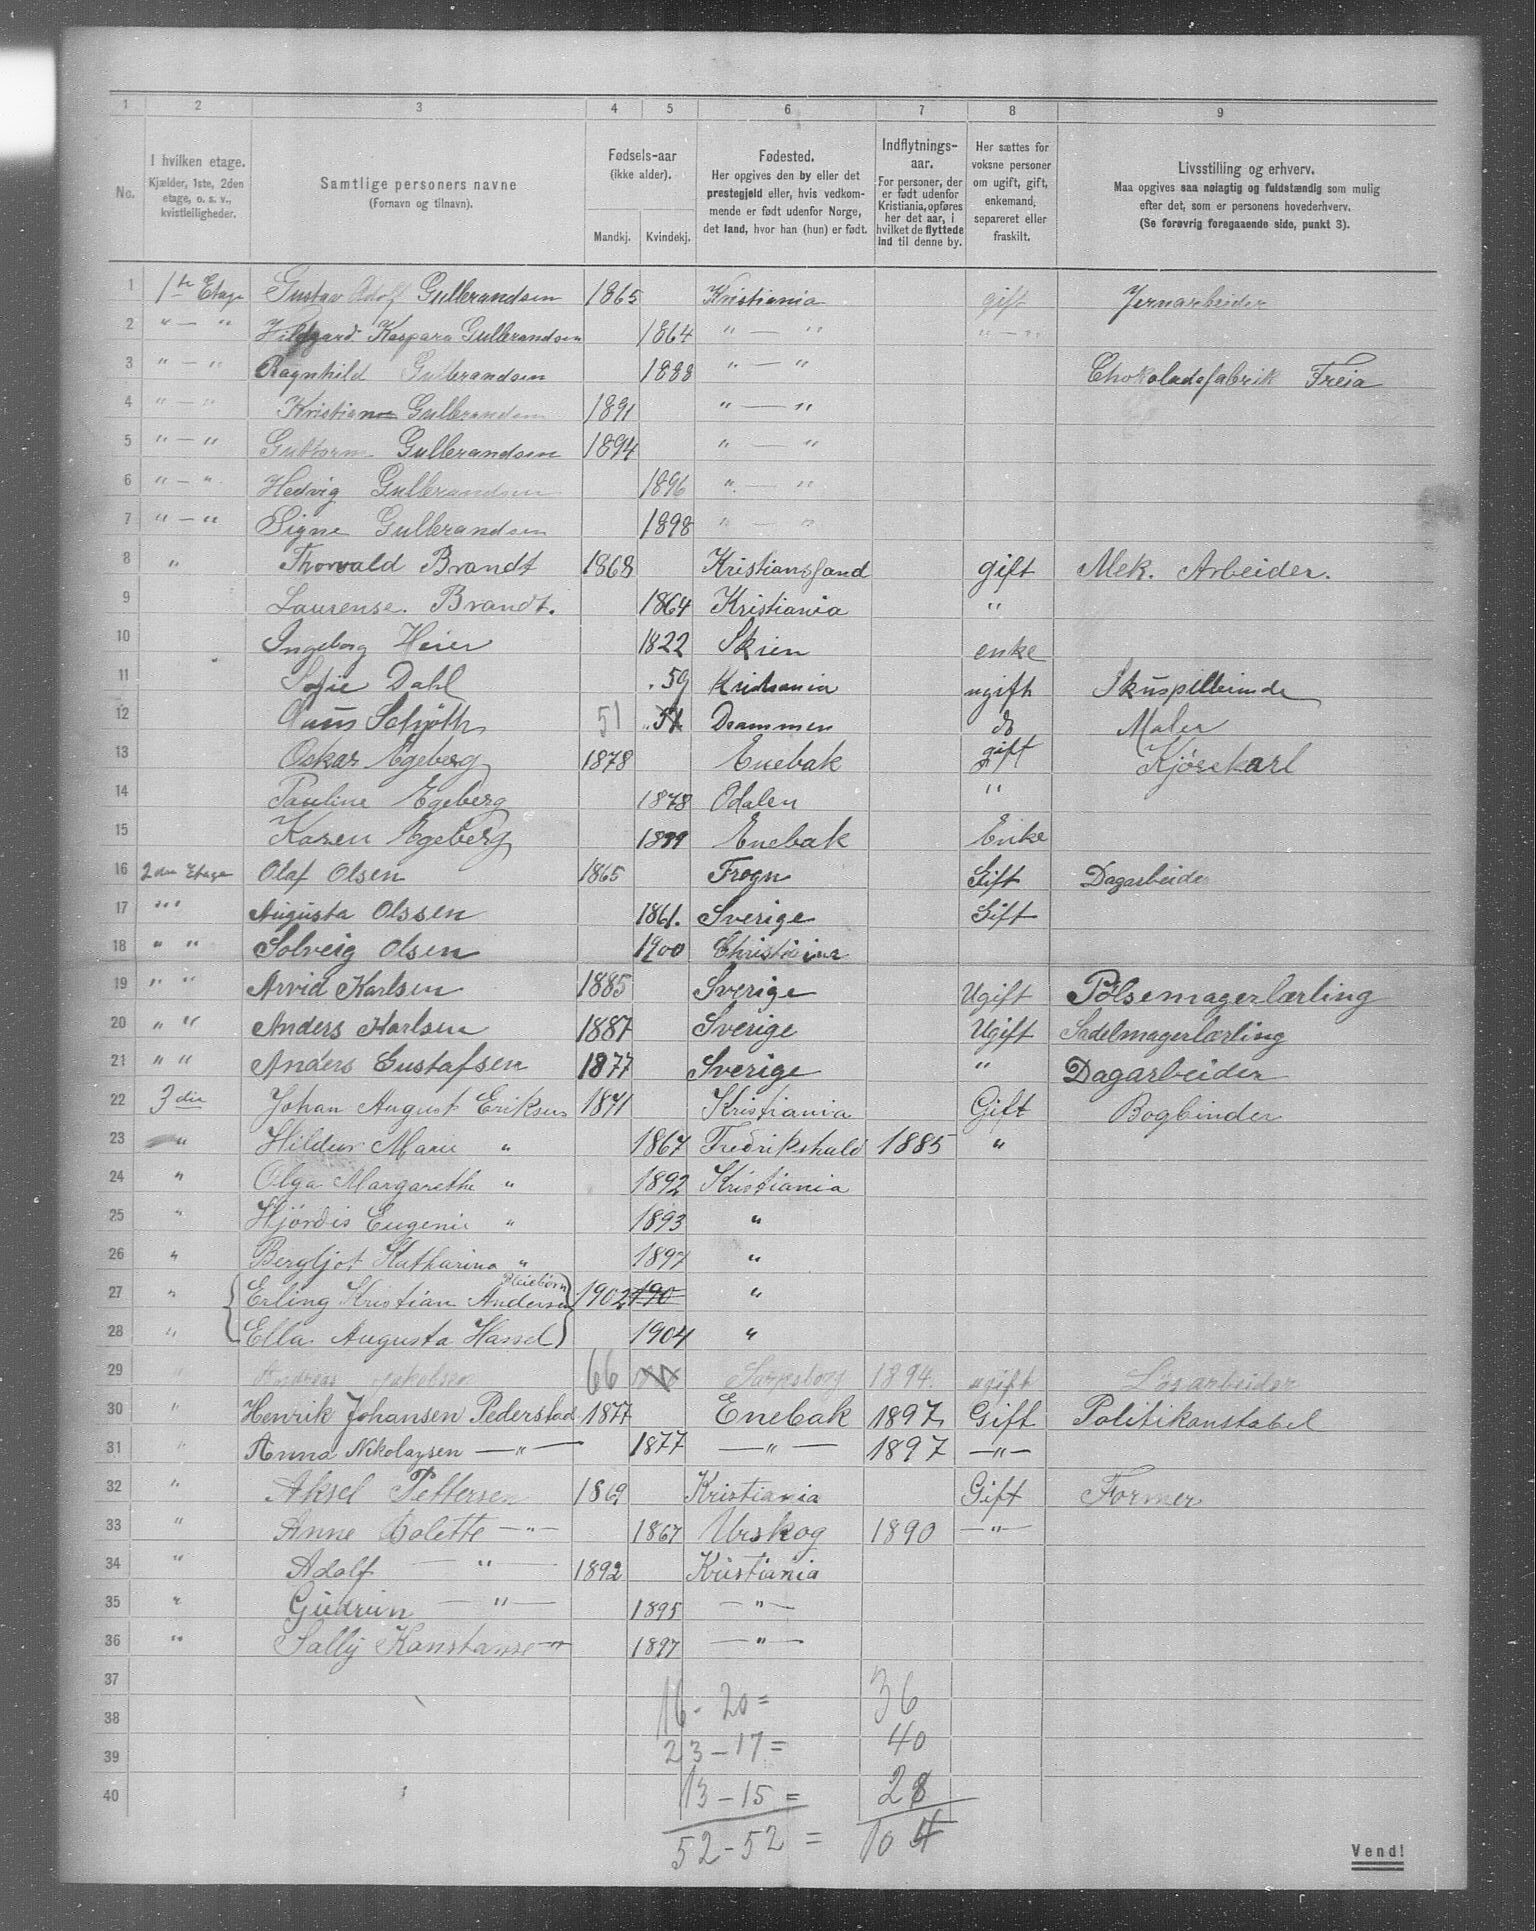 1 2 3 4 5 6 7 8 9
No.
I hvilken etage.
Kjælder, 1ste, 2den
etage, o. s. v.,
kvistleiligheder.
Samtlige personers navne
(Fornavn og tilnavn).
Fødsels-aar
(ikke alder).
Mandkj. Kvindekj.
Fødested.
Her opgives den by eller det
prestegjeld eller, hvis vedkom-
mende er født udenfor Norge,
det land, hvor han (hun) er født.
Indflytnings-
aar.
For personer, der
er født udenfor
Kristiania, opføres
her det aar, i
hvilket de flyttede
ind til denne by.
Her sættes for
voksne personer
om ugift, gift,
enkemand,
separeret eller
fraskilt.
Livsstilling og erhverv.
Maa opgives saa nøiagtig og fuldstændig som mulig
efter det, som er personens hovederhverv.
(Se forøvrig foregaaende side, punkt 3).
1 1te Etage Gustav Adolf Gulbrandsen 1865 Kristiania gift Jernarbeider
2 " — " Hildgard Kaspara Gulbrandsen 1864 " — " " — "
3 " — " Ragnhild Gulbrandsen 1888 " — " Chokoladefabrik Freia
4 " — " Kristian Gulbrandsen 1891 " — "
5 " — " Guttorm Gulbrandsen 1894 " — "
6 " — " Hedvig Gulbrandsen 1896 " — "
7 " — " Signe Gulbrandsen 1898 " — "
8 " Thorvald Brandt 1868 Kristiansand gift Mek. Arbeider.
9 Laurense. Brandt. 1864 Kristiania "
10 Ingeborg Heier 1822 Skien enke
11 Sofie Dahl . 59 Kristiania ugift Skuspillerinde
12 Schjøth 51 Drammen do Maler
13 Oskar Egeberg 1878 Enebak gift Kjørekarl
14 Pauline Egeberg 1878 Odalen "
15 Karen Egeberg Enebak Enke
16 2den Etage Olaf Olsen 1865 Frogn Gift Dagarbeider
17 " " Augusta Olssen 1861. Sverige Gift
18 " " Solveig Olsen 1900 Christiania
19 " " Arvid Karlsen 1885 Sverige Ugift Pølsemagerlærling
20 " " Anders Karlsen 1887 Sverige Ugift Sadelmagerlærling
21 " " Anders Gustafsen 1877 Sverige " Dagarbeider
22 3die Johan August Eriksen 1871 Kristiania Gift Bogbinder
23 " Hildur Marie " 1867 Fredrikshald 1885 "
24 " Olga Margarethe " 1892 Kristiania
25 " Hjørdis Eugenie " 1893 "
26 " Bergljot Katharina " 1897 "
27 " Erling Kristian Andersen Pleiebørn 1902 190 "
28 " Ella Augusta Hassel 1904 "
29 " Andreas 66 Sarpsborg 1894. ugift Løsarbeider
30 " Henrik Johansen Pederstad 1877 Enebak 1897 Gift Politikonstabel
31 " Anna Nikolaysen — " — 1877 — " — 1897 — " —
32 " Aksel Pettersen 1869 Kristiania Gift Former
33 " Anne Colette — " — 1867 Urskog 1890 — " —
34 " Adolf — " — 1892 Kristiania
35 " Gudrun — " — 1895 — " —
36 " Sally Konstanse — " — 1897 — " —
37 16 - 20 = 36
38
39 23 - 17 = 40
40 13 - 15 = 28
52 - 52 = 104
Vend!